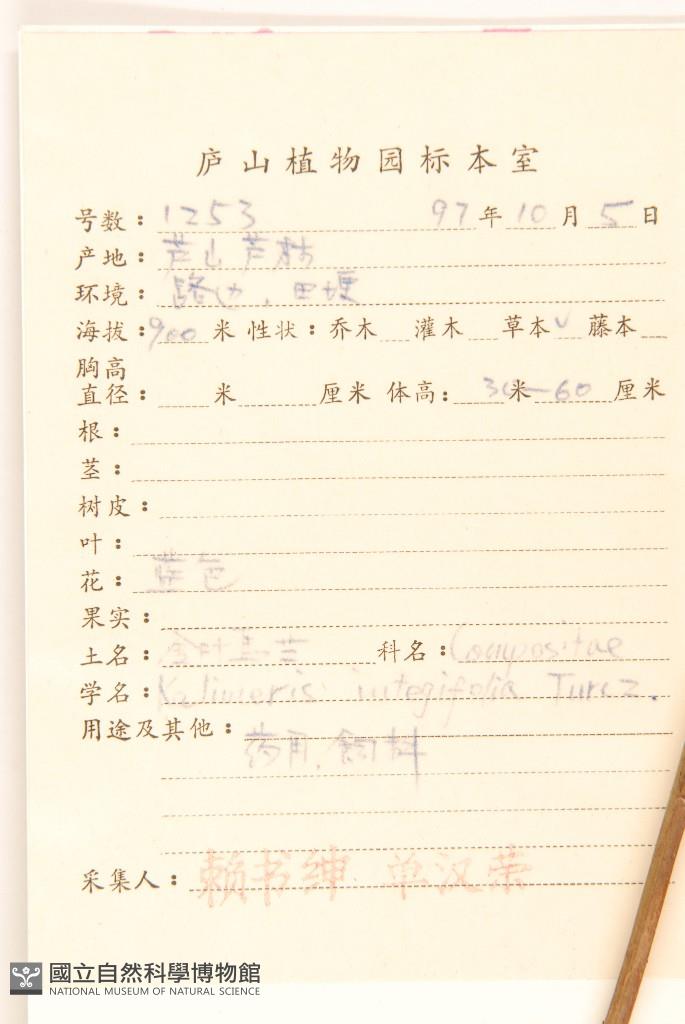 庐山植物园标本室
号数：1253 97年10月5日
产地：芦山芦林
环境：路边，田埂
海拔：900米 性状：乔木 灌木 草本√ 藤本
胸高
直径： 米 厘米 体高： 30米—60厘米
根：
茎：
树皮：
叶：
花：蓝色
果实：
土名：全叶马兰 科名：Compositae
学名：Kalimeris integifolia Turcz.
用途及其他：药用，饲料
采集人：赖书绅 单汉荣
國立自然科學博物館
NATIONAL MUSEUM OF NATURAL SCIENCE